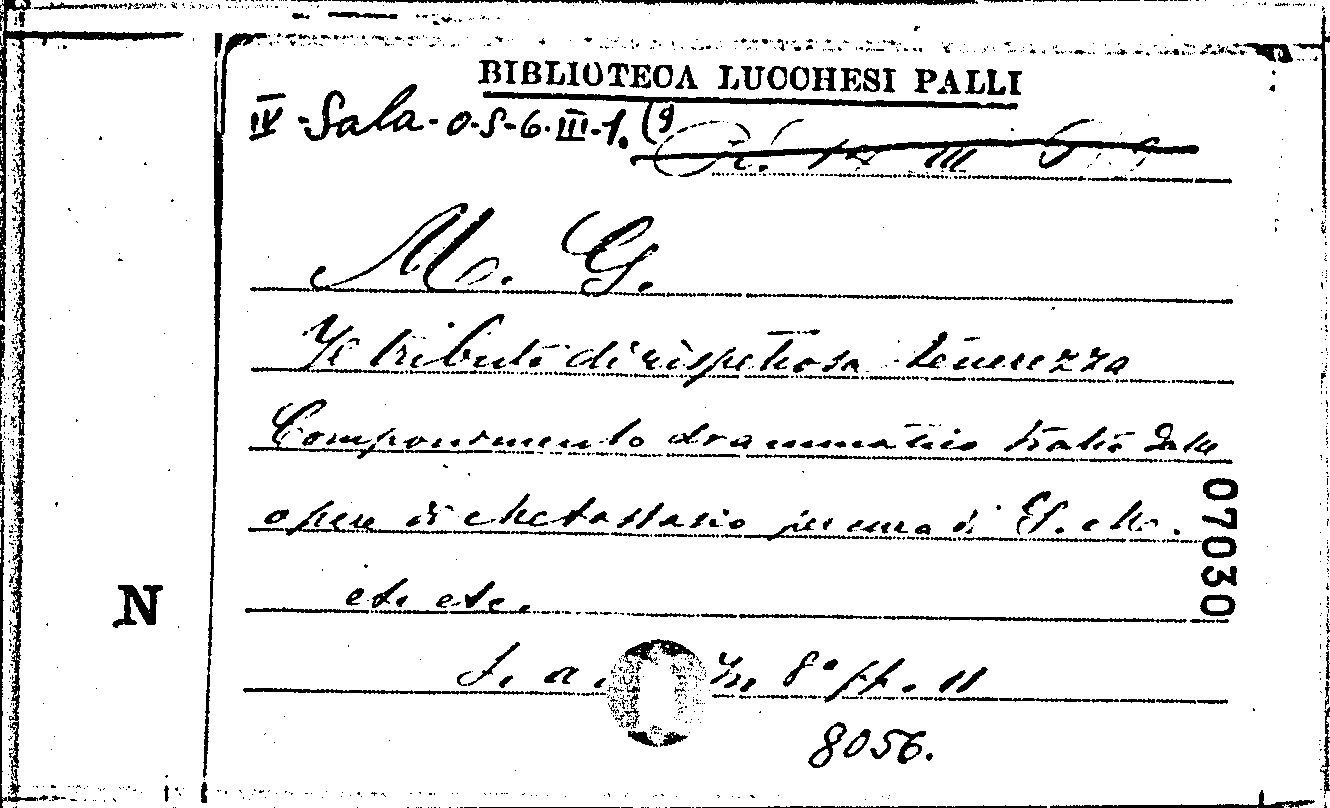 BIBLIOTECA LUCCHESI PALLI
IV - Sala - O-S-6-III-1. (9
M. G.
Il tributo di rispettosa tenerezza
Componimento drammatico tratto dalle
opere di Metastasio per cura di G. M.
etc. etc.
S. a. In 8° pp. 11
8056.
07030
N